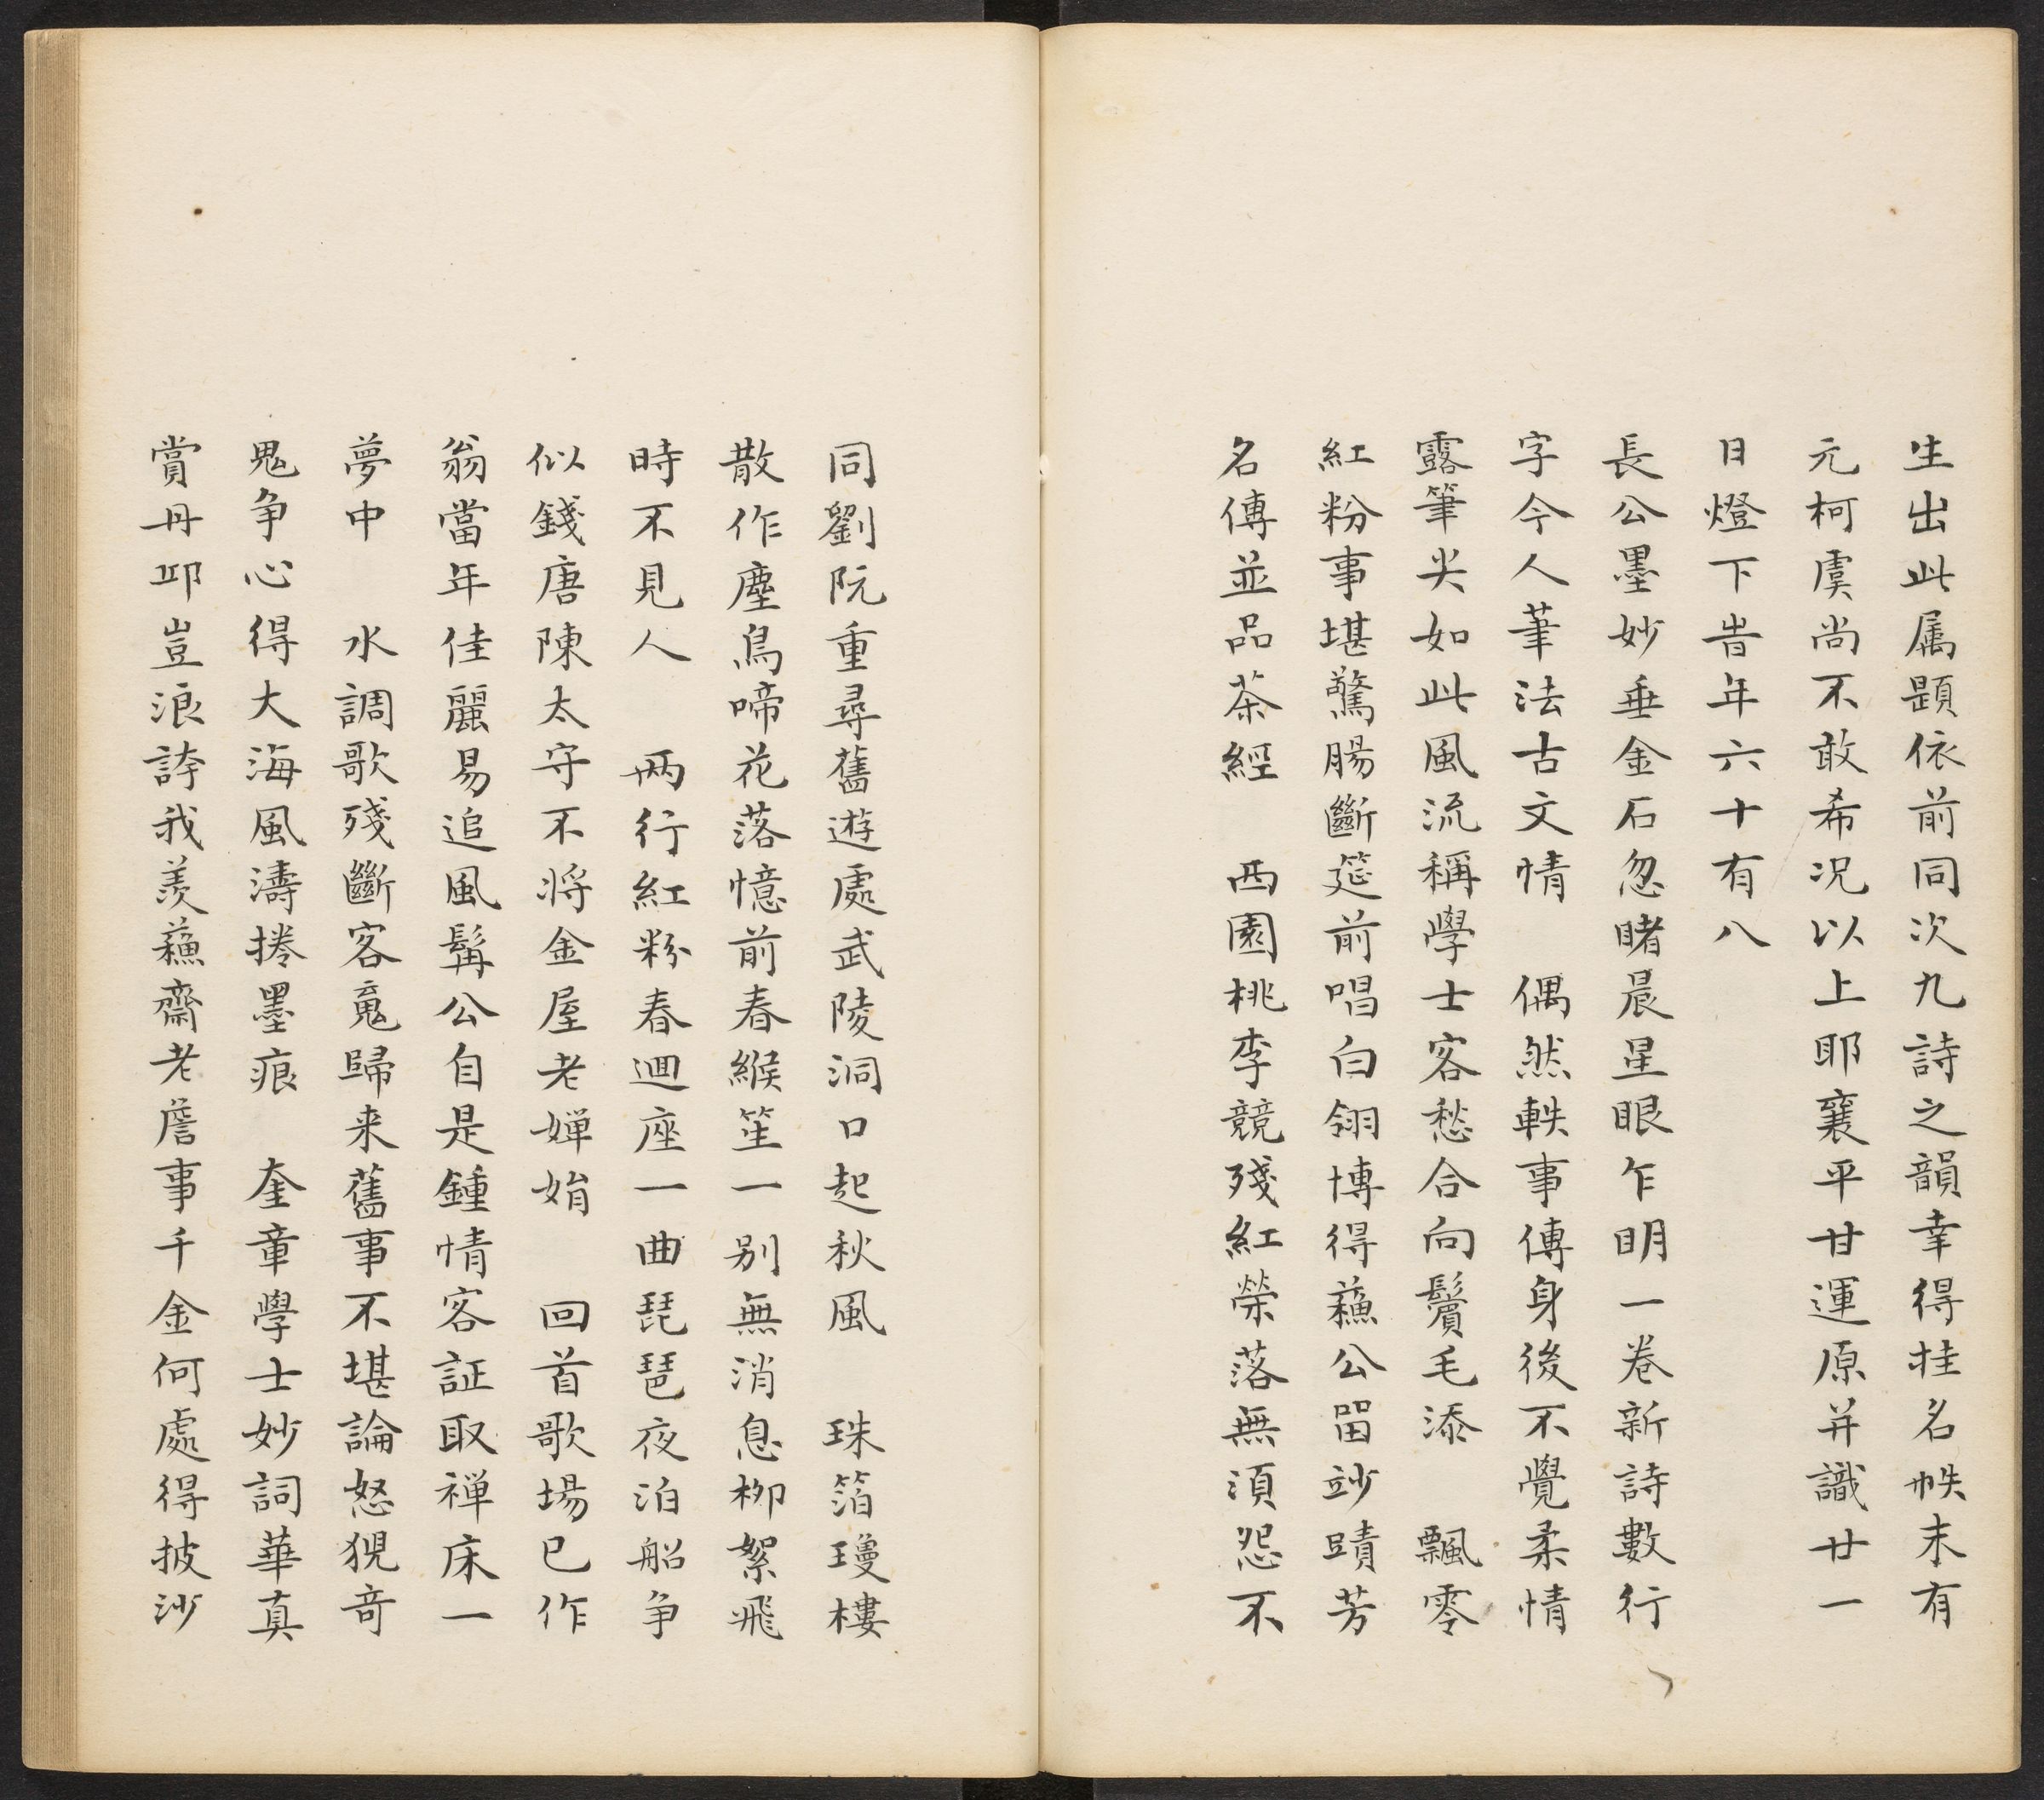 生出此属題依前同次九詩之韻幸得挂名帙末有
元柯虞尚不敢希况以上耶襄平甘運原并識廿一
日燈下旹年六十有八
長公墨妙垂金石忽睹晨星眼乍明一卷新詩數行
字今人筆法古文情　偶然軼事傳身後不覺柔情
露筆尖如此風流稱學士客愁合向鬢毛添　飄零
紅粉事堪驚腸斷筵前唱白翎博得蘓公畱竗蹟芳
名傳並品茶經　西園桃李競殘紅榮落無須怨不
同劉阮重尋舊遊處武陵洞口起秋風　珠箔瓊樓
散作塵鳥啼花落憶前春緱笙一别無消息栁絮飛
時不見人　兩行紅粉春迴座一曲琵琶夜泊船争
似錢唐陳太守不將金屋老嬋娟　回首歌場已作
翁當年佳麗易追風髯公自是鍾情客証取禅床一
夢中　水調歌殘斷客䰟歸来舊事不堪論怒猊奇
鬼争心得大海風濤捲墨痕　奎章學士妙詞華真
賞丹邱豈浪誇我羨蘓齋老詹事千金何處得披沙